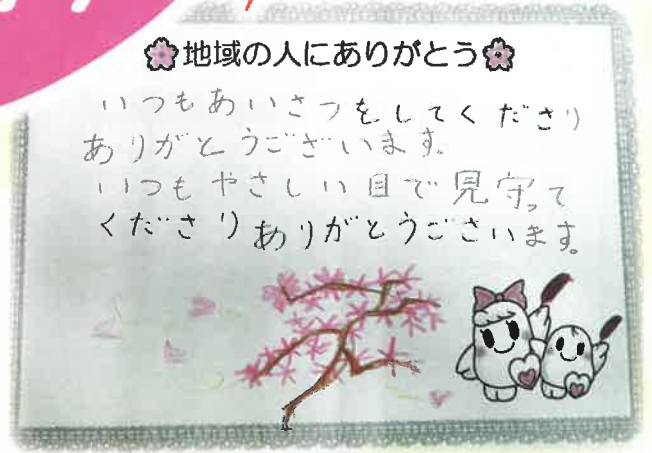 地域の人にありがとう
いつもあいさつをしてくださり
ありがとうございます。
いつもやさしい目で見守って
くださりありがとうございます。